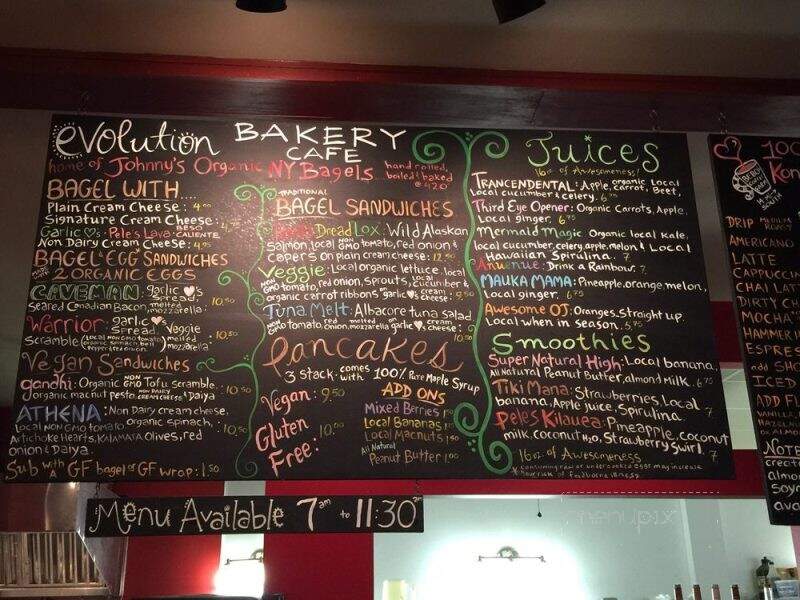 evolution BAKERY CAFE
home of Johnny's Organic NY Bagels
hand rolled,
boiled & baked
@ 420°
BAGEL WITH....
Plain Cream Cheese: 4.00
Signature Cream Cheese:
Garlic ♡: Pele's Lava
Non Dairy Cream Cheese:
BAGEL "EGG" SANDWICHES
2 ORGANIC EGGS
CAVEMAN: garlic ♡'s
Spread,
Seared Canadian Bacon, melted
mozzarella 10.50
Warrior: garlic ♡'s
Spread, Veggie
Scramble melted
mozzarella 10.50
Vegan Sandwiches
gandhi: Organic NON GMO Tofu scramble,
organic macnut pesto, & Daiya 10.50
ATHENA: Non Dairy cream cheese,
Local NON GMO tomato, Organic spinach,
Artichoke Hearts, KALAMATA Olives, red
onion & Daiya. 10.50
Sub with a GF bagel or GF wrap: 1.50
TRADITIONAL
BAGEL SANDWICHES
Dread Lox: Wild Alaskan
Salmon, local NON GMO tomato, red onion &
Capers on plain cream cheese: 12.50
Veggie: Local organic lettuce, local
NON GMO tomato, red onion, sprouts, Local cucumber &
organic carrot ribbons "garlic ♡'s cream cheese: 9.50
Tuna Melt: Albacore tuna salad,
NON GMO tomato, red onion, melted mozzarella, garlic ♡'s cream cheese:
10.50
Pancakes
3 stack: comes with 100% Pure Maple Syrup
Vegan: 9.50
Gluten
Free: 10.00
ADD ONS
Mixed Berries
Local Bananas
Local Macnuts 1.50
All Natural
Peanut Butter 1.00
Juices
16 oz of Awesomeness!
TRANCENDENTAL: Apple, organic carrot, Local Beet,
Local cucumber & celery. 6.75
Third Eye Opener: Organic Carrots, Apple,
Local ginger. 6.75
Mermaid Magic: Organic local kale,
local cucumber, celery, apple, melon & Local
Hawaiian Spirulina. 7
Anuenue: Drink a Rainbow. 7
MAUKA MAMA: Pineapple, orange, melon,
Local ginger. 6.75
Awesome OJ: Oranges, Straight up.
Local when in season. 5.75
Smoothies
Super Natural High: Local banana,
All Natural Peanut Butter, almond milk. 6.75
Tiki Mana: Strawberries, Local
banana, Apple juice, Spirulina. 7
Pele's Kilauea: Pineapple, coconut
milk, coconut H₂O, Strawberry Swirl. 7
16 oz of Awesomeness
* Consuming raw or undercooked eggs may increase
your risk of foodborne illness
Menu Available 7am to 11:30am
100
Kon
DRIP MEDIUM ROAST
AMERICANO
LATTE
CAPPUCCIN
CHAI LATT
DIRTY CH
MOCHA
HAMMERH
ESPRES
add SHO
ICED
ADD FL
VANILLA,
HAZELNU
NOTE
create
almon
soy m
ava
menupix